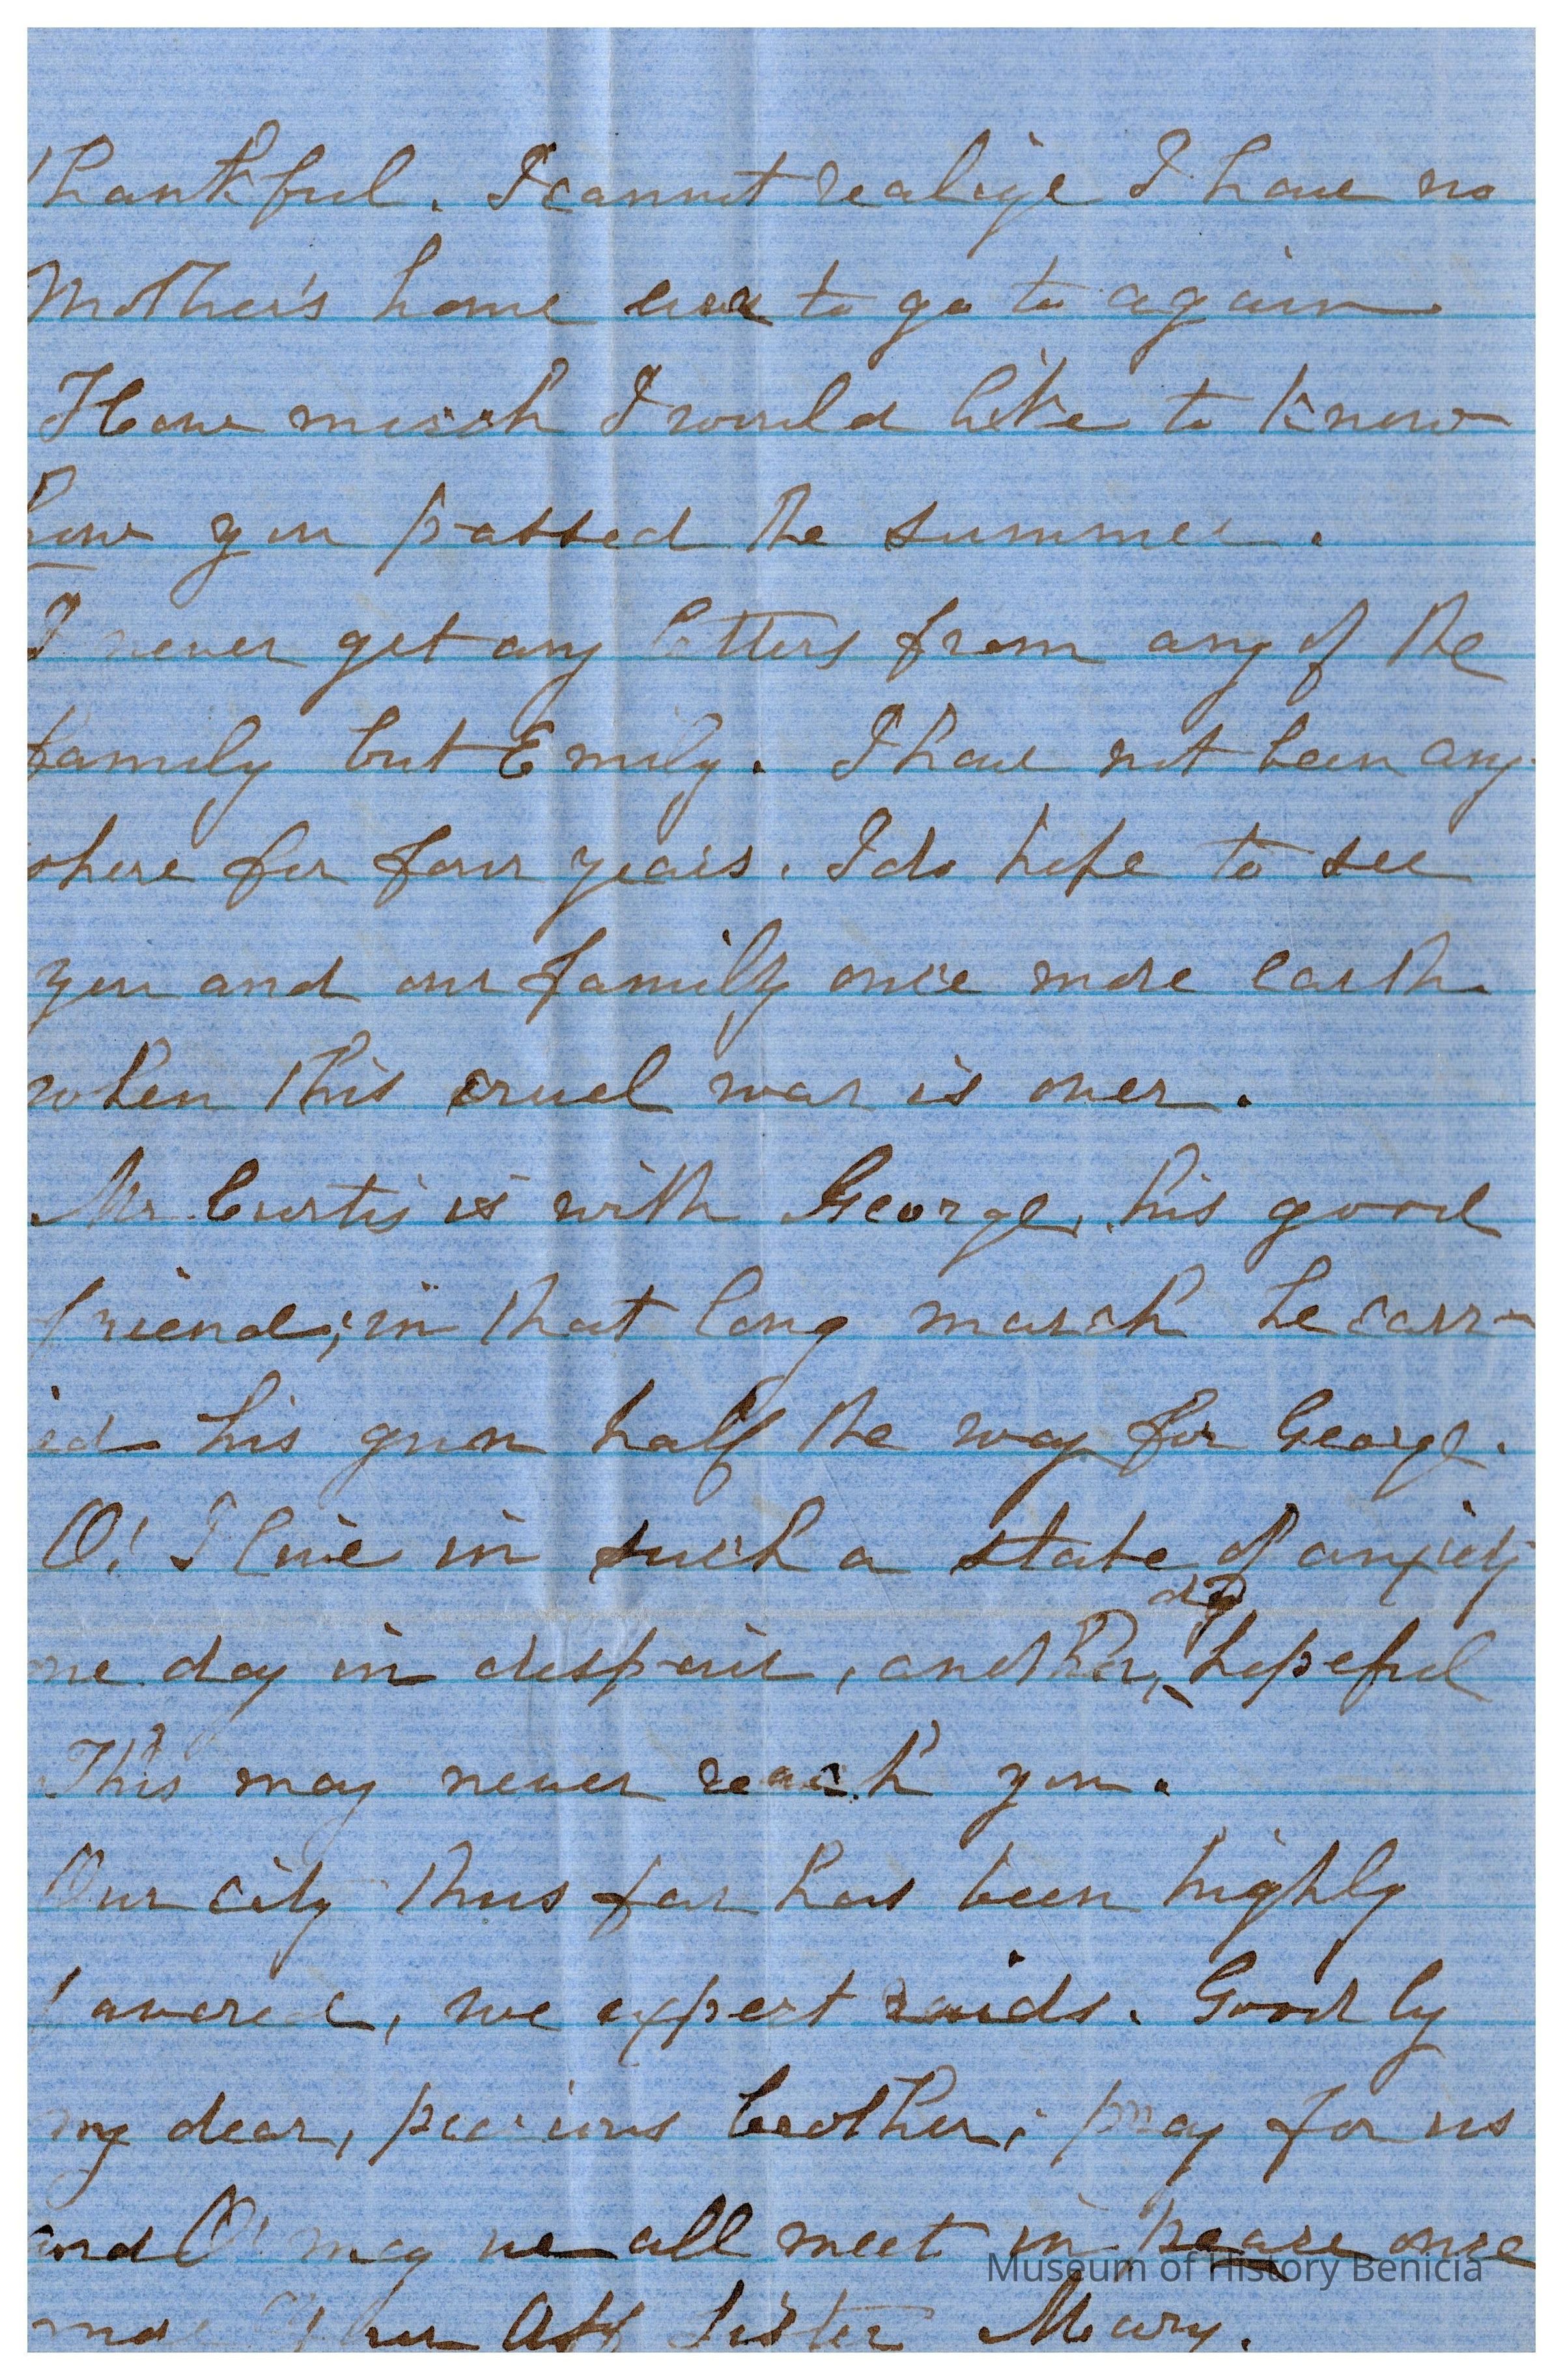 thankful. I cannot realize I have no
Mother's home ever to go to again
How much I would like to know
how you passed the summer.
I never get any letters from any of the
family but Emily. I have not been any-
where for four years. I do hope to see
you and our family once more earth
when this cruel war is over.
Mr Curtis is with George, his good
friend; in that long march he carr-
ied his gun half the way for George.
O! I live in such a state of anxiety
one day in despair, another, day hopeful
This may never reach you.
Our city thus far has been highly
favored, we expect raids. Good by
my dear, precious brother; pray for us
and O! may we all meet in peace once
more Your Aff Sister Mary.
Museum of History Benicia